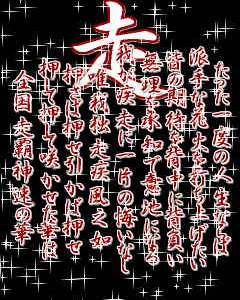 走
たった一度の人生ならば
派手な花火を打ち上げたい
皆の期待を背中に背負い
無理を承知で意地になる
我が疾走に一片の悔いなし
唯我独走疾風之如
押さば押せ引かば押せ
押して押して咲かせた華は
全国走覇神速の華